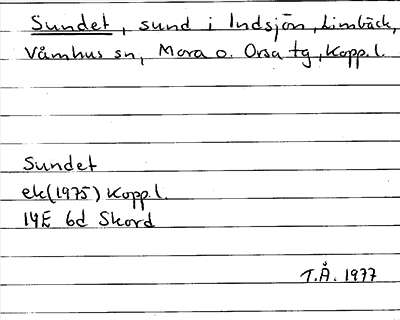 Sundet, sund i Indsjön, Limbäck,
Våmhus sn, Mora o. Orsa tg, Kopp.l.
Sundet
ek(1975) Kopp.l.
14E 6d Skord
T.Å. 1977